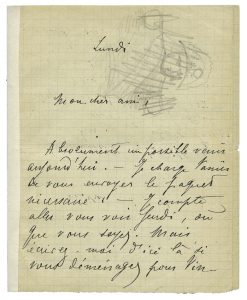 Lundi
Mon cher ami,
Absolument impossible venir
aujourd'hui. — Je charge l'amie
de vous envoyer le paquet
nécessaire! — Je compte
aller vous voir Jeudi, où
que vous soyez. Mais
écrivez-moi d'ici là si
vous déménagez pour l'in-